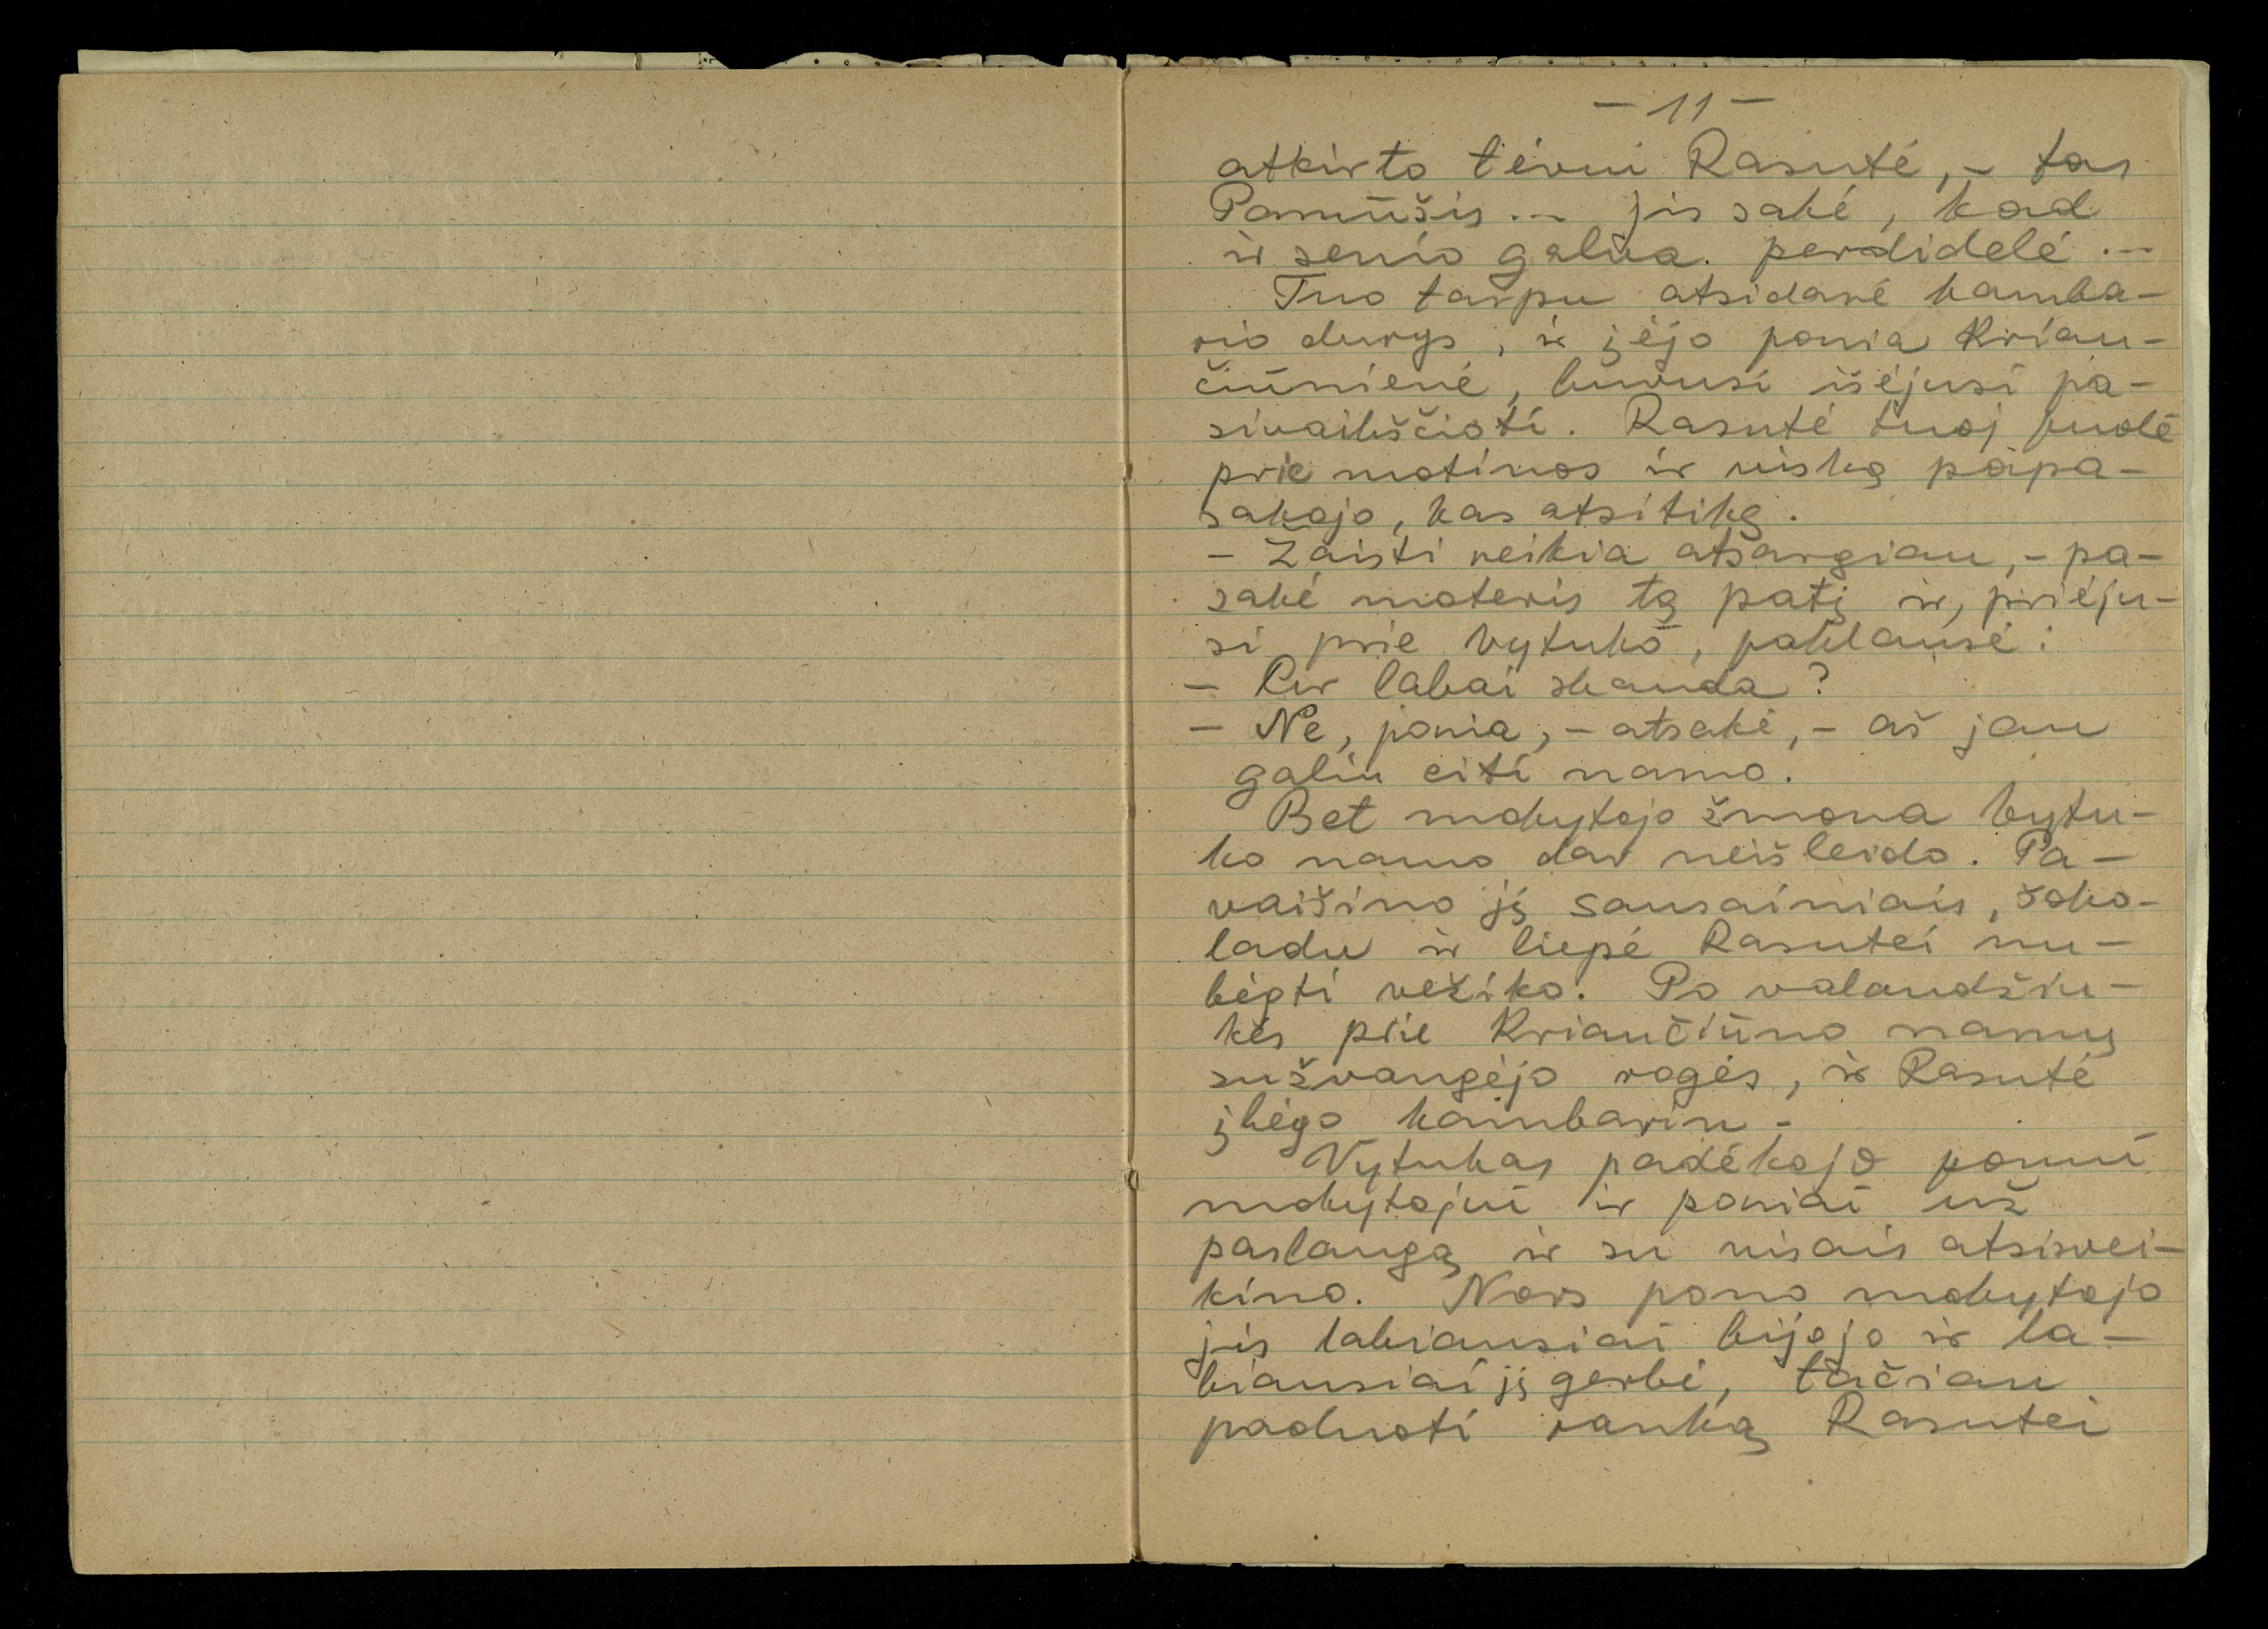 - 11 -
atkirto tėvui Rasutė, - tas
Pamūšis... jis sakė, kad
ir senio galva. perdidelė ...
Tuo tarpu atsidarė kamba-
rio durys, ir įėjo ponia Kriau-
čiūnienė, buvusi išėjusi pa-
sivaikščioti. Rasutė tuoj puolė
prie motinos ir viską papa-
sakojo, kas atsitikę.
- Žaisti reikia atsargiau, - pa-
sakė moteris tą patį ir, priėju-
si prie Vytuko, paklausė:
- Kur labai skauda?
- Ne, ponia, - atsakė, - aš jau
galiu eiti namo.
Bet mokytojo žmona Vytu-
ko namo dar neišleido. Pa-
vaišino jį sausainiais, šoko-
ladu ir liepė Rasutei nu-
bėgti vežiko. Po valandžiu-
kės prie Kriaučiūno namų
sužvangėjo rogės, ir Rasutė
įbėgo kambarin.
Vytukas padėkojo ponui
mokytojui ir poniai už
paslaugą ir su visais atsisvei-
kino. Nors pono mokytojo
jis labiausiai bijojo ir la-
biausiai jį gerbė, tačiau
paduoti ranką Rasutei